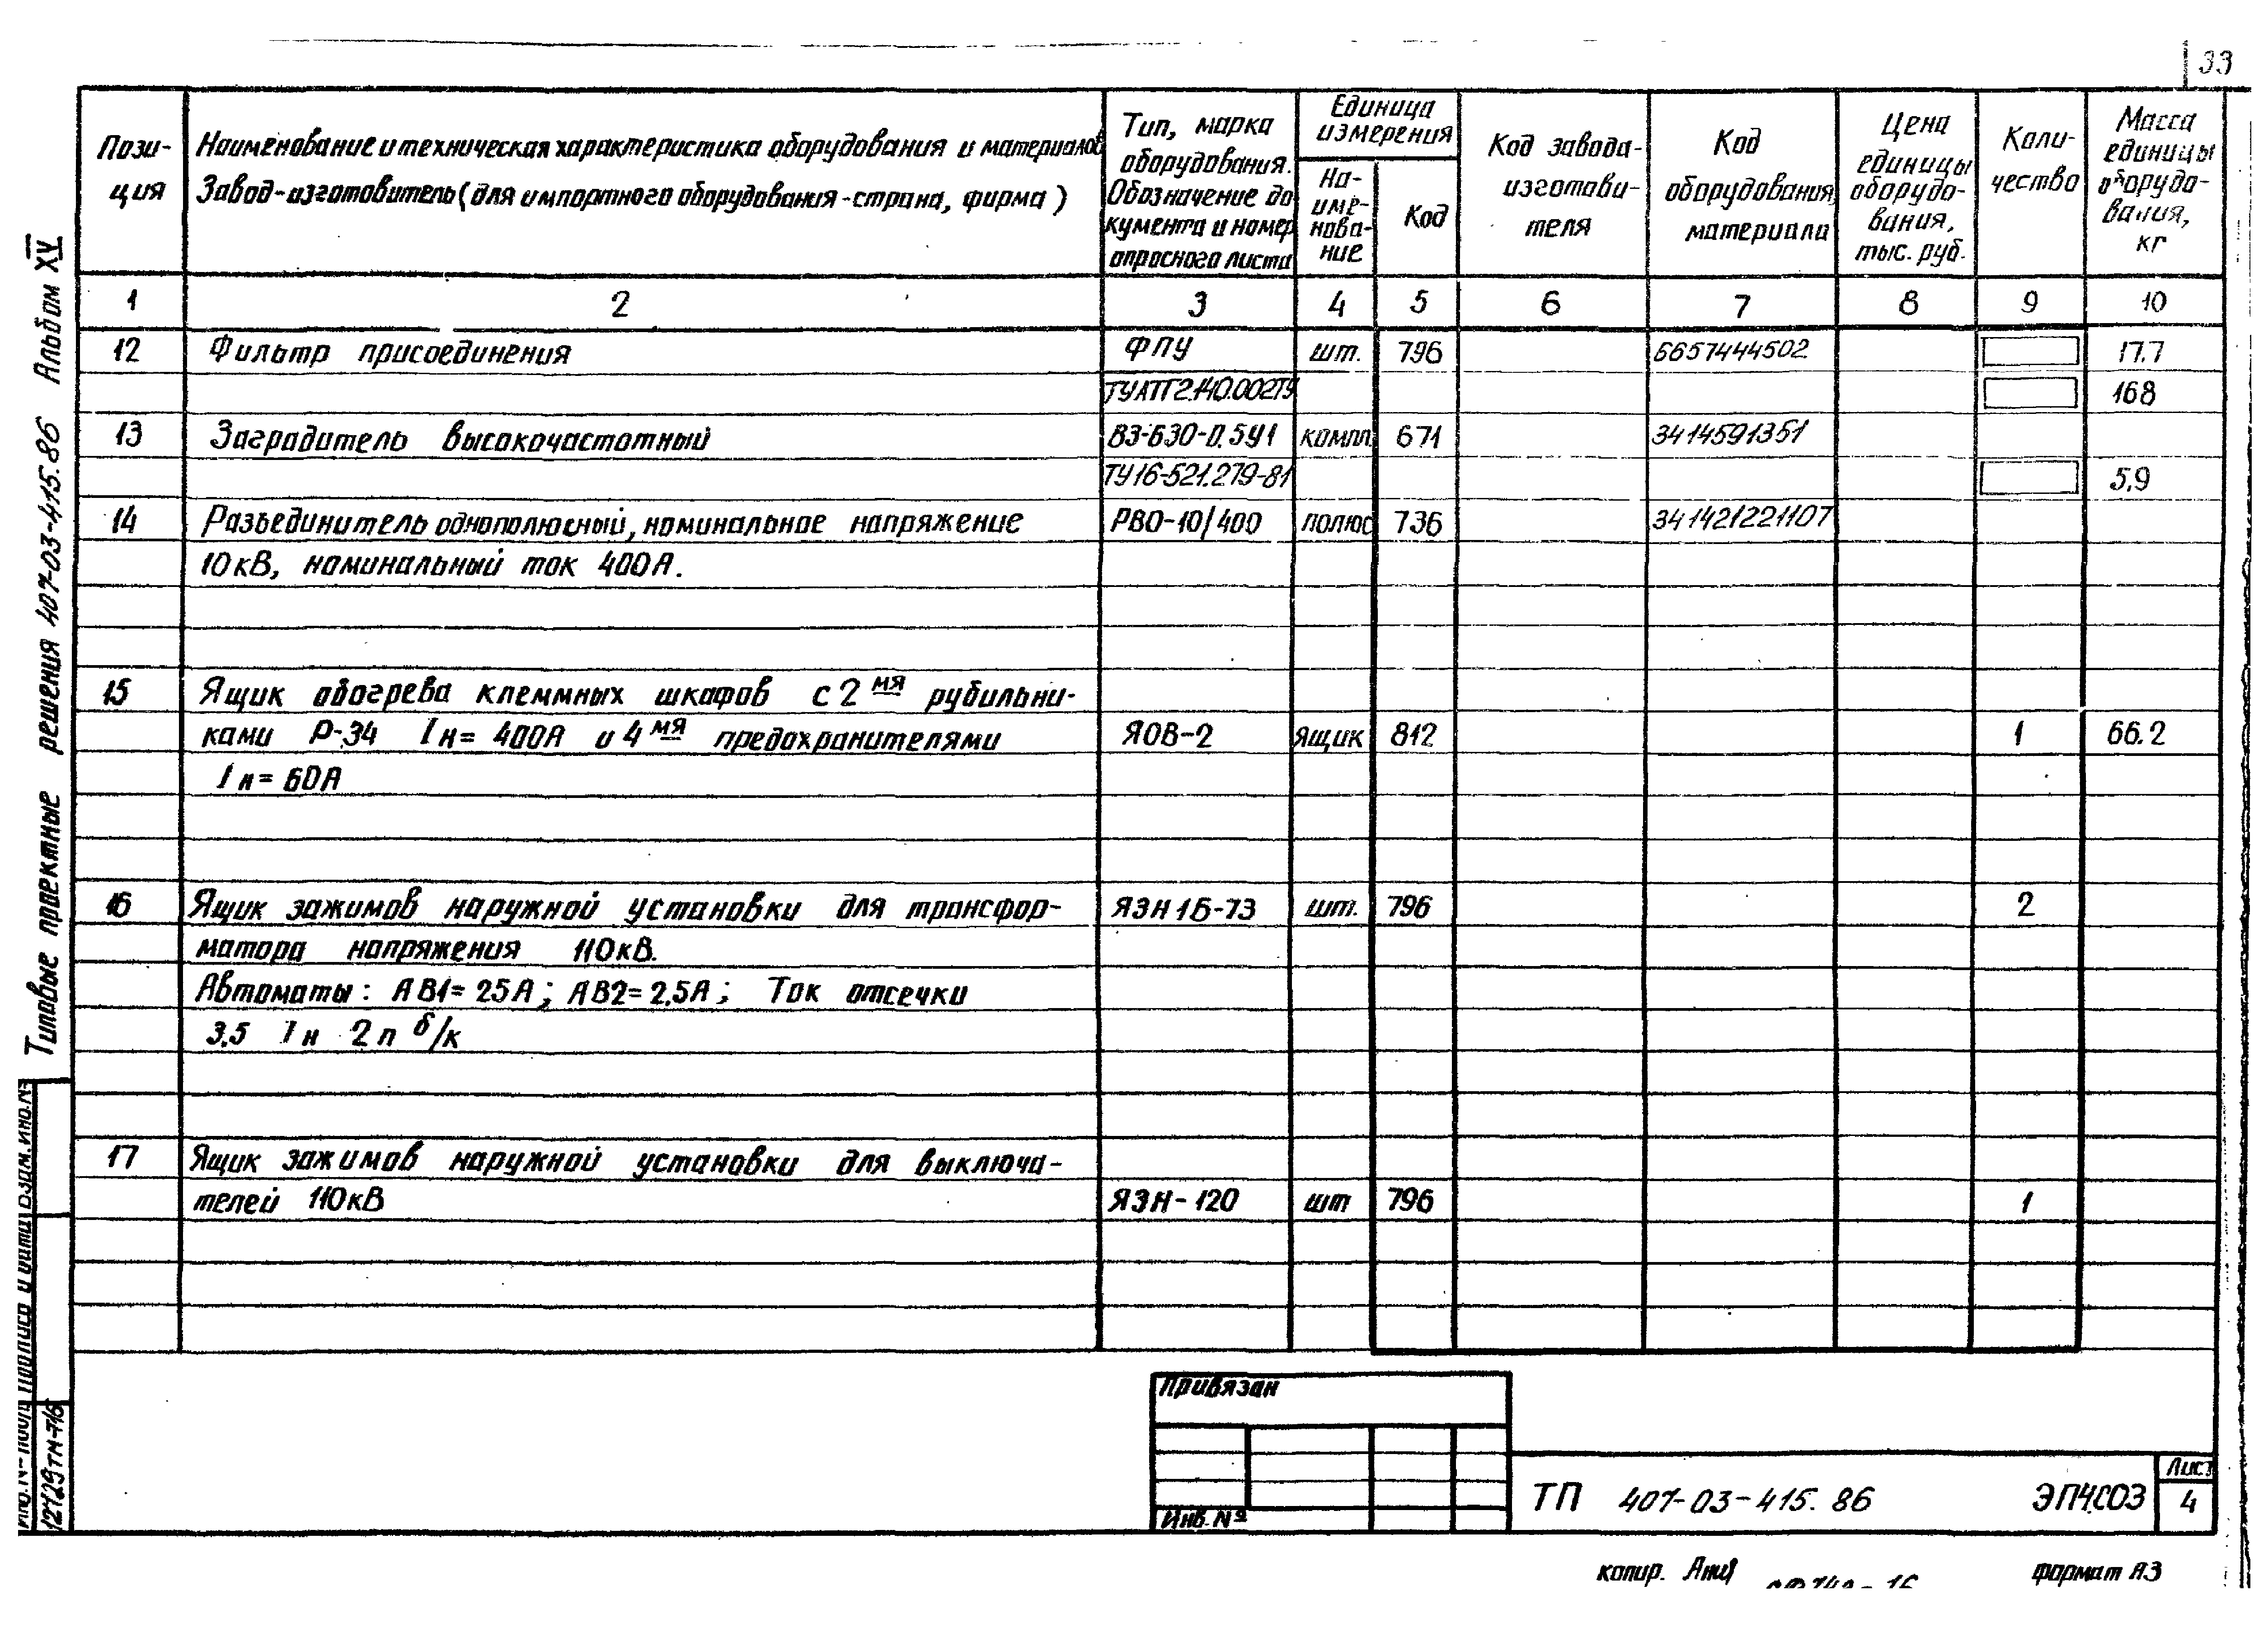 33
Пози-
ция
Наименование и техническая характеристика оборудования и материалов
Завод-изготовитель (для импортного оборудования - страна, фирма)
Тип, марка
оборудования.
Обозначение до
кумента и номер
опросного листа
Единица
измерения
На-
име-
нова-
ние
Код
Код завода-
изготави-
теля
Код
оборудования,
материала
Цена
единицы
оборудо-
вания,
тыс. руб.
Коли-
чество
Масса
единицы
оборудо-
вания,
кг
1 2 3 4 5 6 7 8 9 10
12 Фильтр присоединения ФПУ шт. 796 6657444502 17.7
168
13 Заградитель высокочастотный ВЗ-630-0.5У1 компл. 671 3414591351
ТУ16-521.279-81 5.9
14 Разъединитель однополюсный, номинальное напряжение РВО-10/400 полюс 736 341421221107
10кВ, номинальный ток 400А.
15 Ящик обогрева клеммных шкафов с 2 мя рубильни-
ками Р-34 Iн= 400А и 4 мя предохранителями ЯОВ-2 ящик 812 1 66.2
Iн= 60А
16 Ящик зажимов наружной установки для трансфор- ЯЗН 16-73 шт. 796 2
матора напряжения 110кВ.
Автоматы: АВ1= 25А; АВ2= 2,5А; Ток отсечки
3,5 Iн 2п б/к
17 Ящик зажимов наружной установки для выключа-
телей 110кВ ЯЗН-120 шт 796 1
Привязан
Инв. №
ТП 407-03-415.86 ЭП4.СО3
Лист
4
копир. формат А3
Типовые проектные решения 407-03-415.86 Альбом XV
12729тм-т16